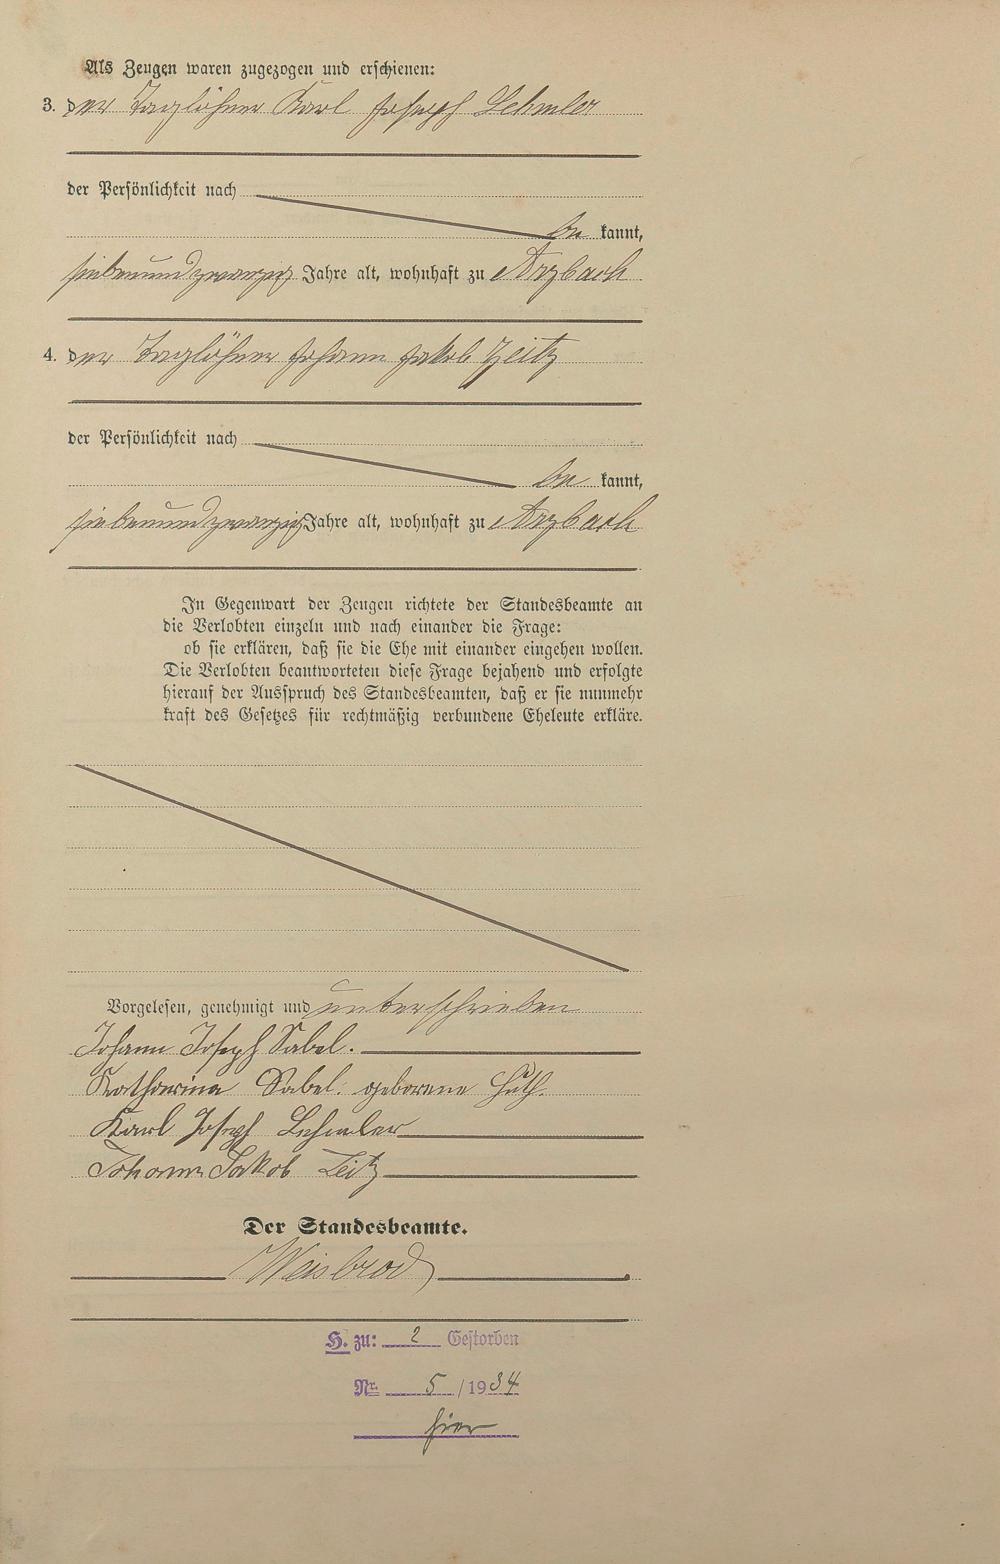 Als Zeugen waren zugezogen und erschienen:
3. der Taglöhner Karl Joseph Lehmler
der Persönlichkeit nach
be kannt,
siebenundzwanzig Jahre alt, wohnhaft zu Arzbach
4. der Taglöhner Johann Jakob Zeitz
der Persönlichkeit nach
be kannt,
siebenundzwanzig Jahre alt, wohnhaft zu Arzbach
In Gegenwart der Zeugen richtete der Standesbeamte an
die Verlobten einzeln und nach einander die Frage:
ob sie erklären, daß sie die Ehe mit einander eingehen wollen.
Die Verlobten beantworteten diese Frage bejahend und erfolgte
hierauf der Ausspruch des Standesbeamten, daß er sie nunmehr
kraft des Gesetzes für rechtmäßig verbundene Eheleute erkläre.
Vorgelesen, genehmigt und unterschrieben
Johann Joseph Sabel.
Katharina Sabel. geborene Huth.
Karl Joseph Lehmler
Johann Jakob Zeitz
Der Standesbeamte.
Weisbrod
H. zu: 2 Gestorben
Nr. 5 /1934
hier